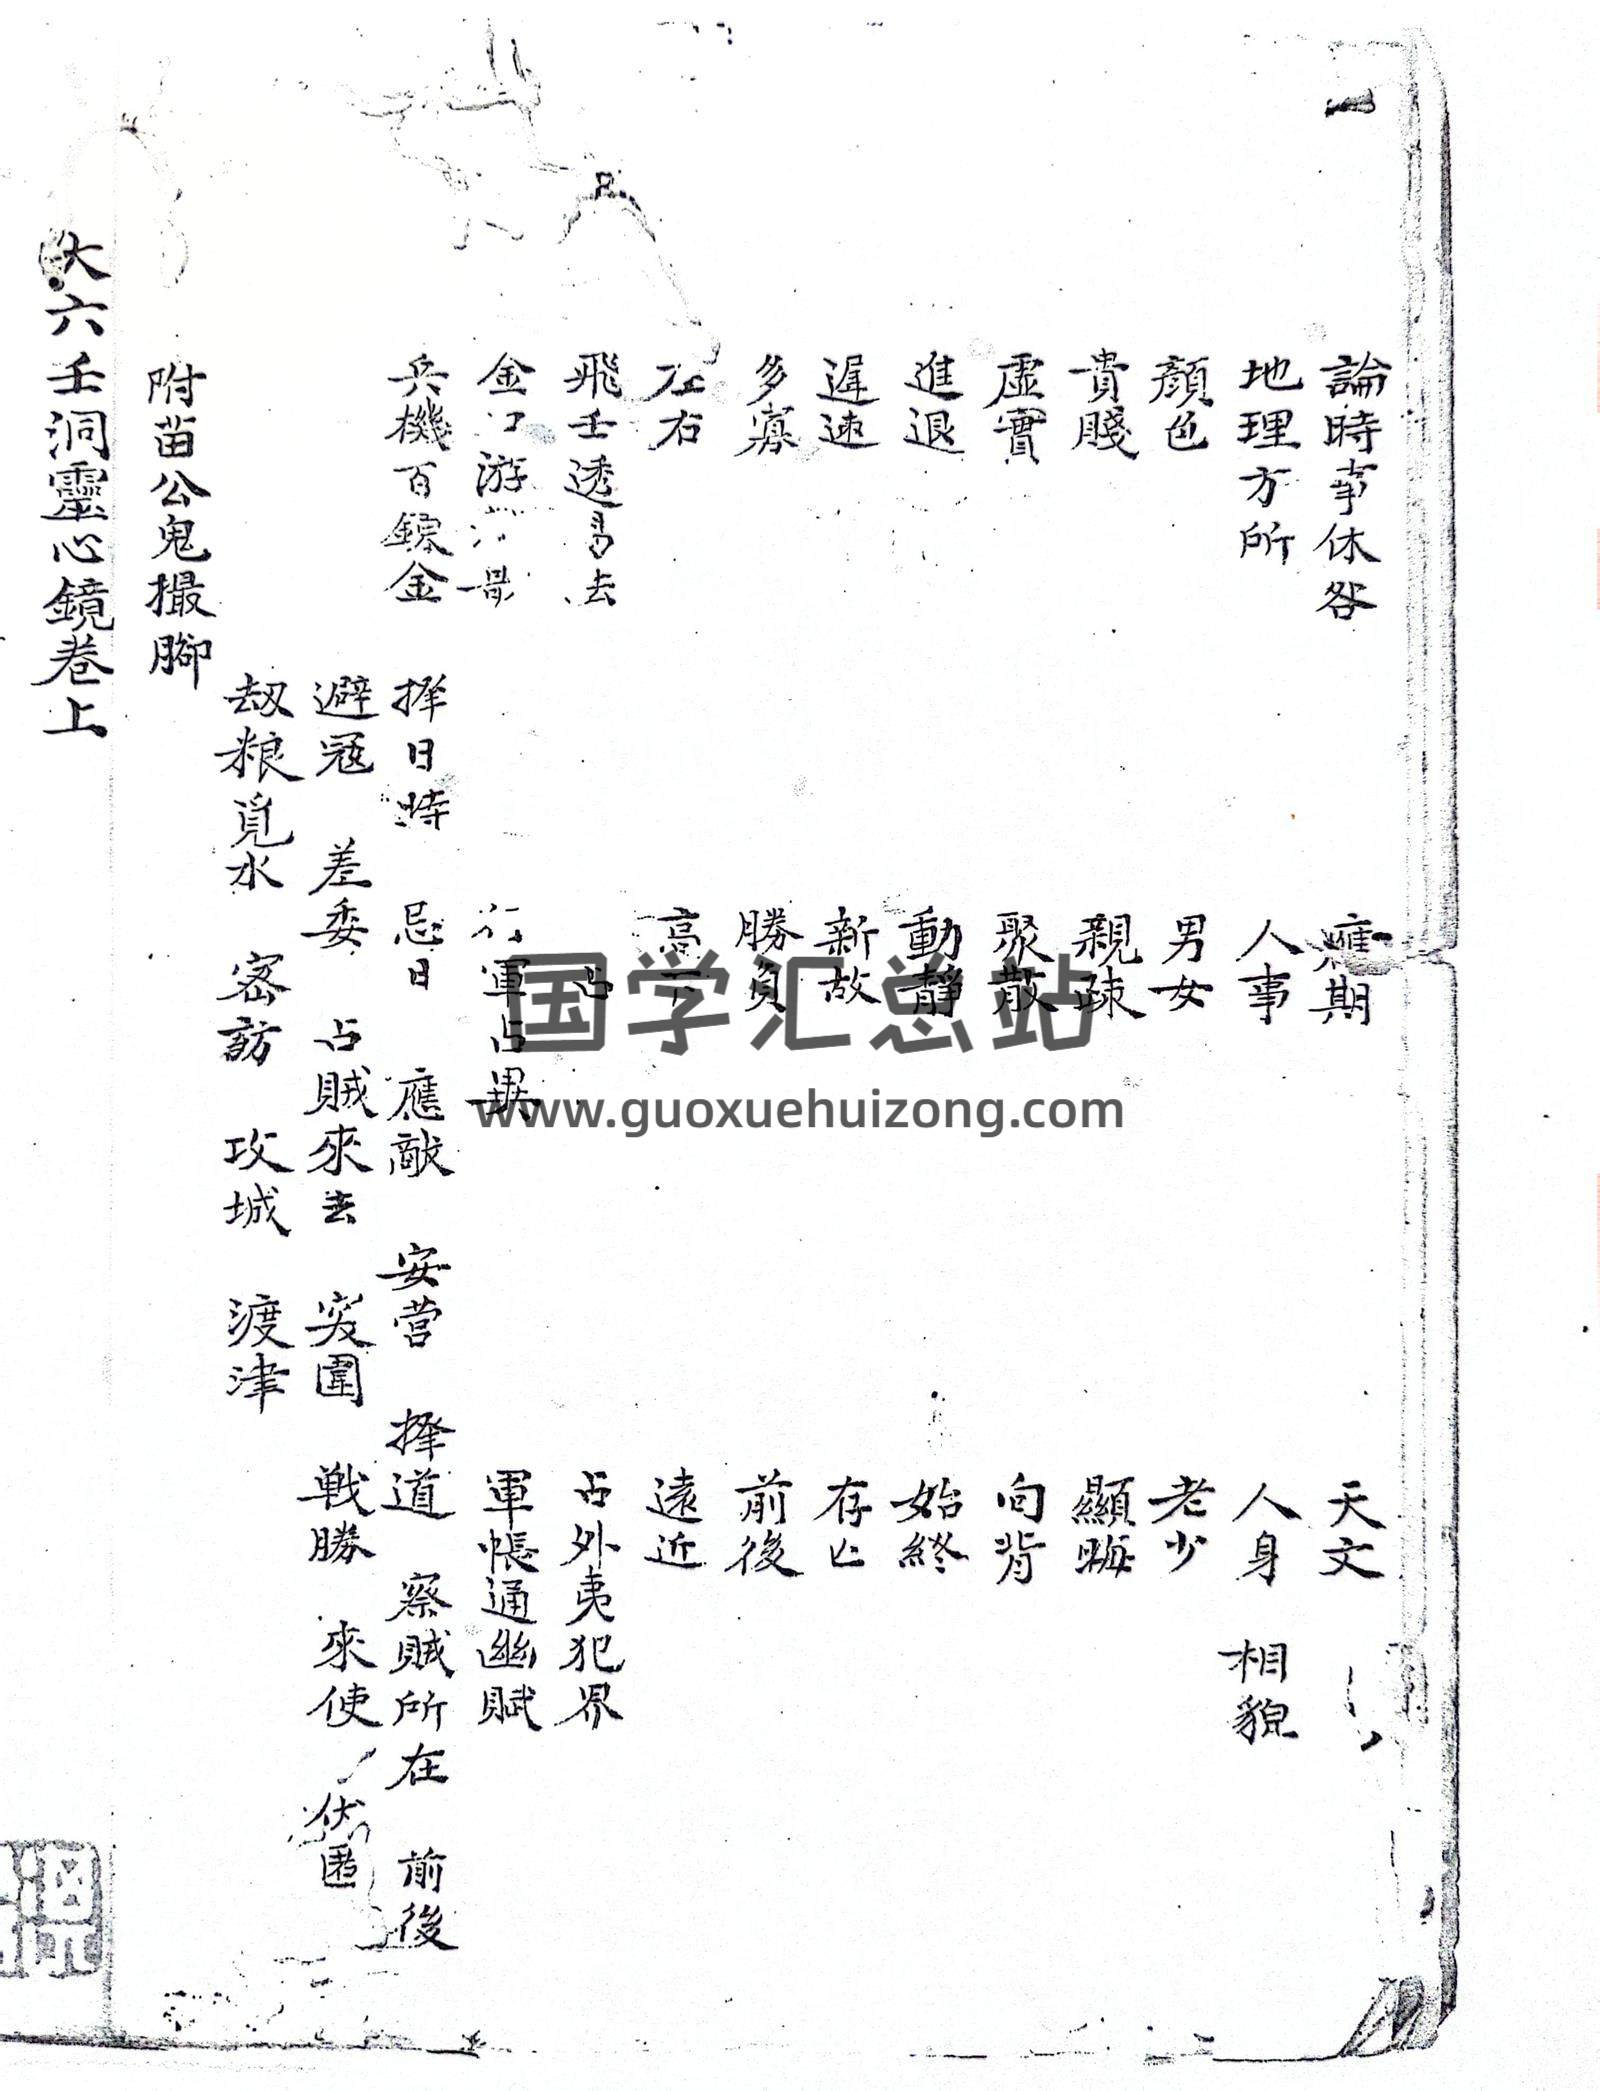 論時事休咎 應期 天文
地理方所 人事 人身 相貌
顏色 男女 老少
貴賤 親疎 顯晦
虛實 聚散 向背
進退 動靜 始終
遲速 新故 存亡
多寡 勝負 前後
左右 高下 遠近
飛壬透易去 占外夷犯界
金口游 行軍占異 軍帳通幽賦
兵機百鍊金 择日時 忌日 應敵 安营 擇道 察賊所在 前後
避寇 差委 占賊來去 突圍 戰勝 來使 伏匿
刼粮覓水 密訪 攻城 渡津
附苗公鬼撮腳
大六壬洞靈心鏡卷上
国学汇总站
www.guoxuehuizong.com